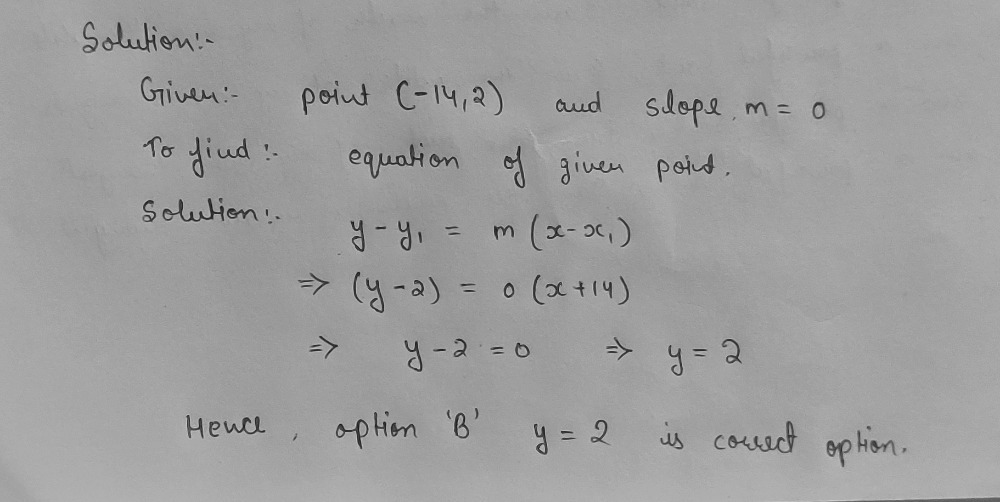 Solution:-
Given:- point (-14,2) and slope, m = 0
To find:- equation of given point.
Solution:-
y - y₁ = m (x - x₁)
⇒ (y - 2) = 0 (x + 14)
⇒ y - 2 = 0 ⇒ y = 2
Hence, option 'B' y = 2 is correct option.